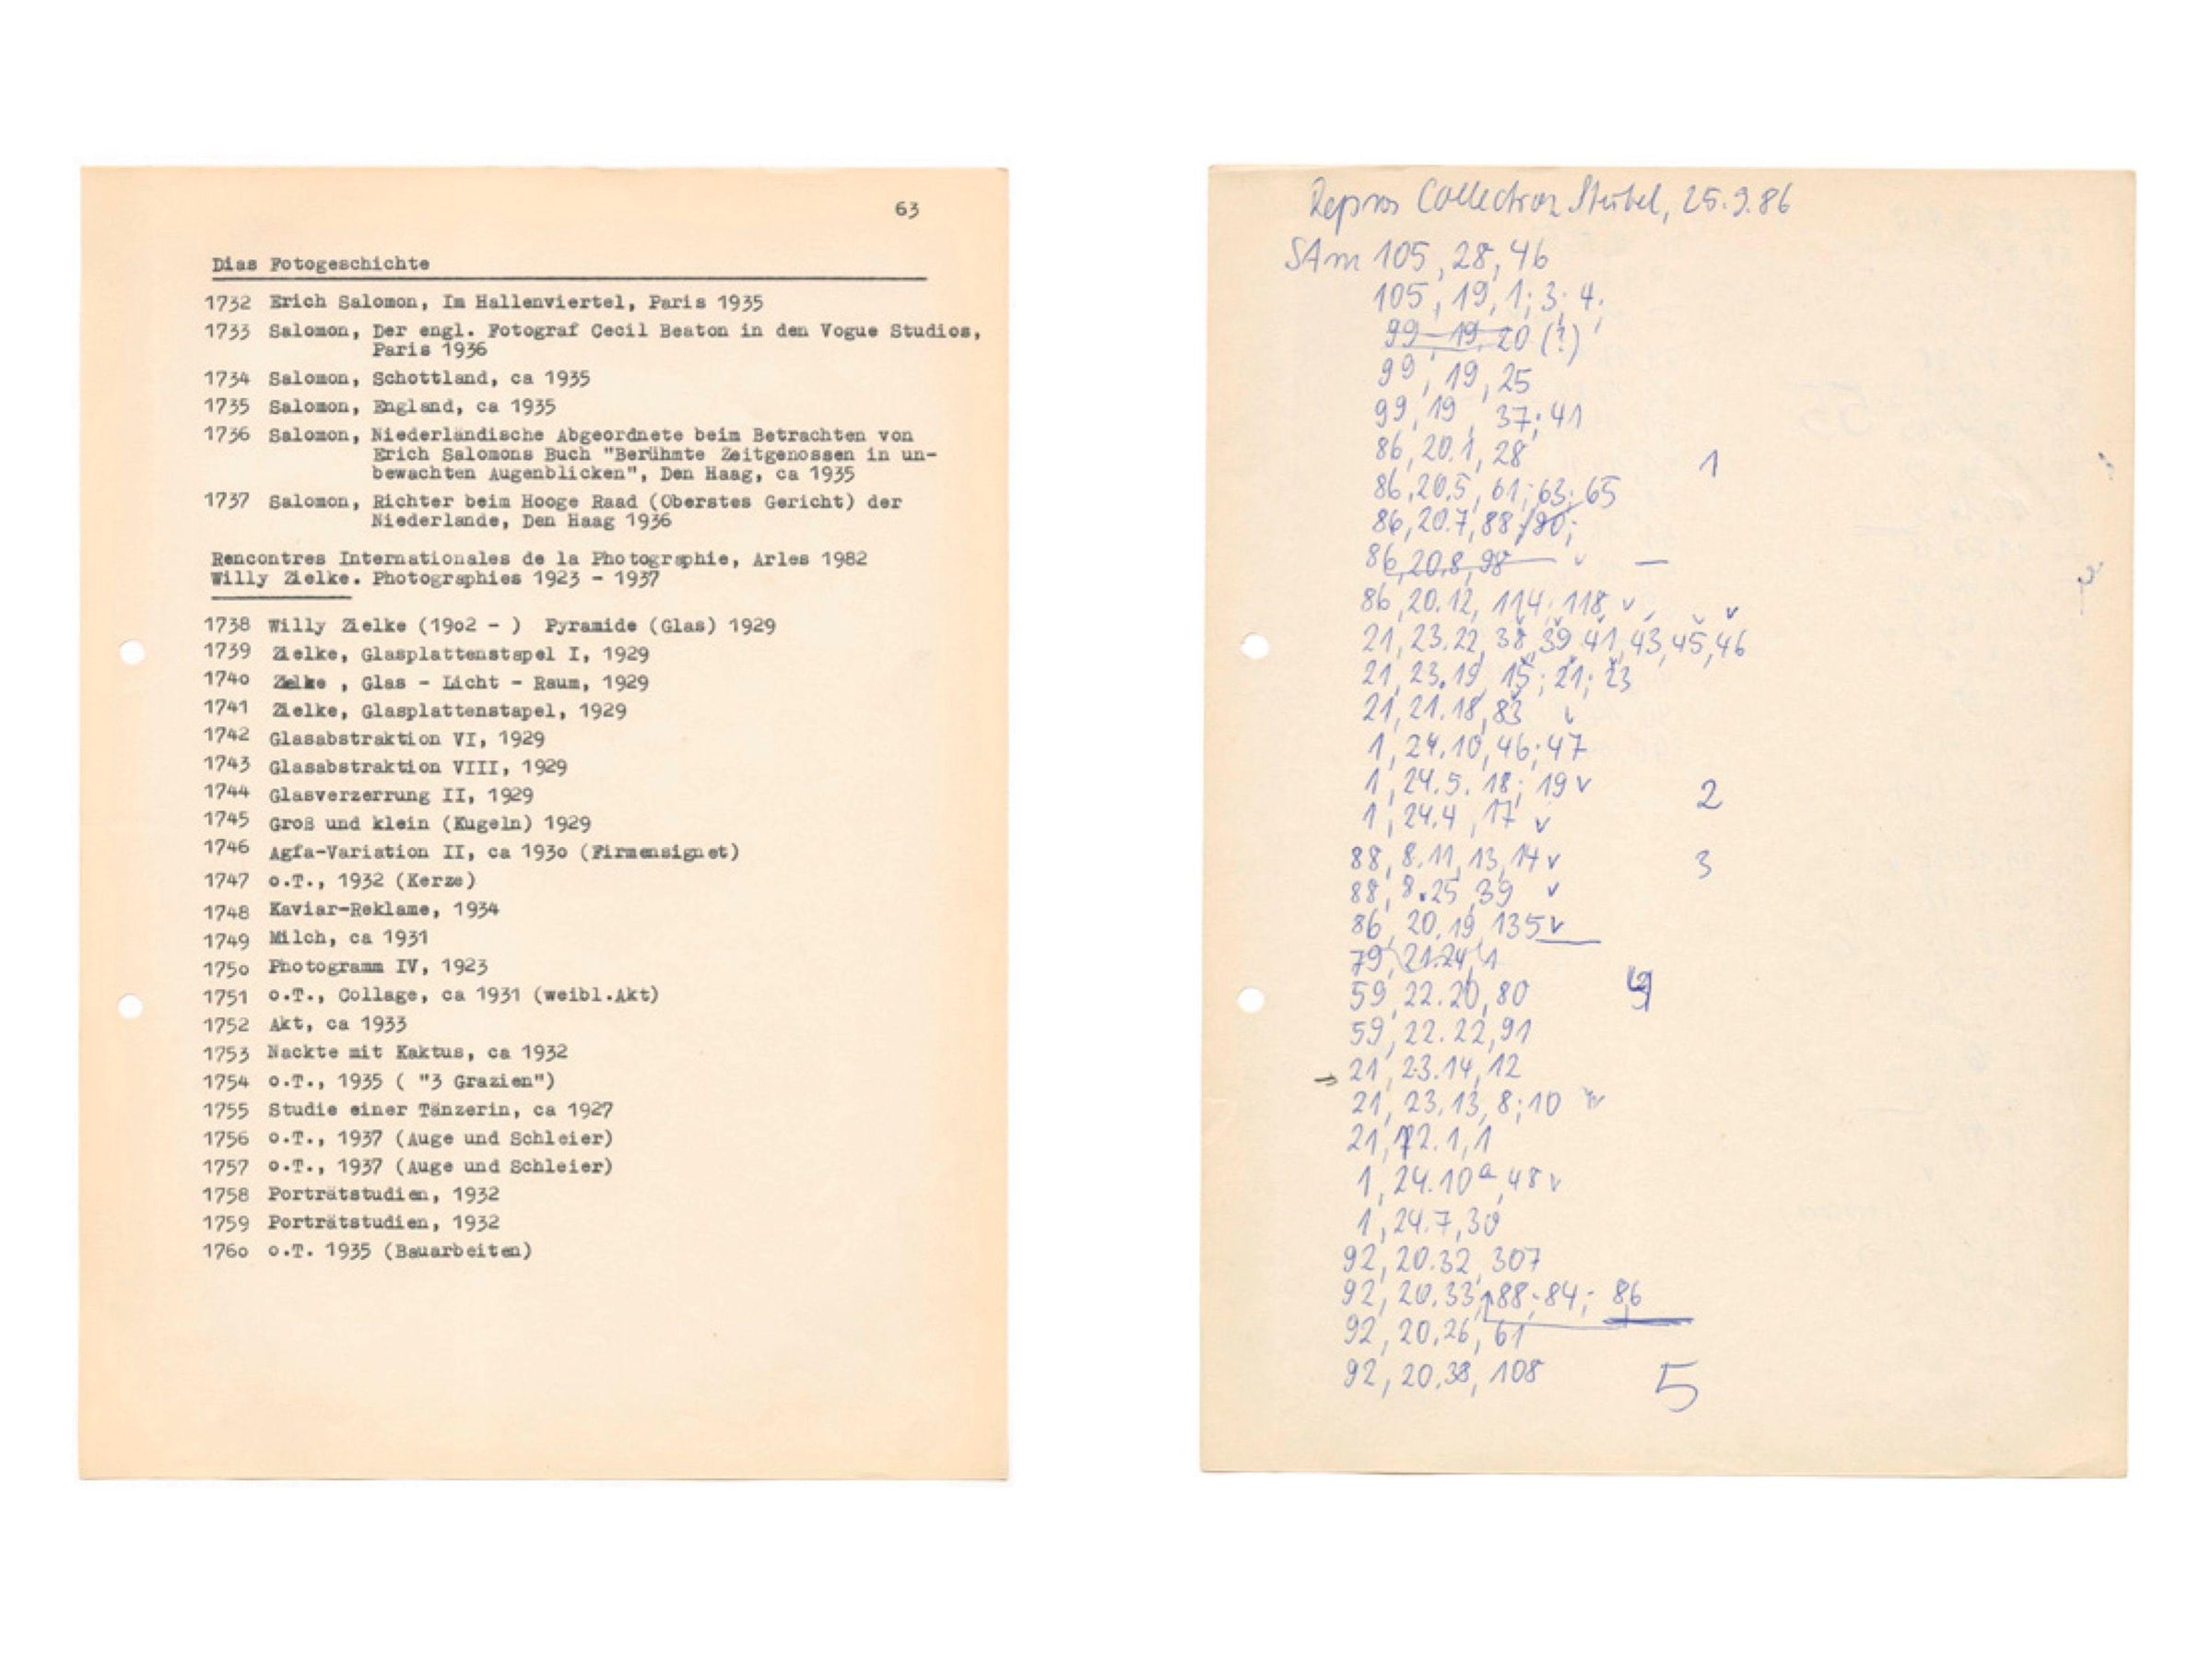 63
Dias Fotogeschichte
1732 Erich Salomon, Im Hallenviertel, Paris 1935
1733 Salomon, Der engl. Fotograf Cecil Beaton in den Vogue Studios,
Paris 1936
1734 Salomon, Schottland, ca 1935
1735 Salomon, England, ca 1935
1736 Salomon, Niederländische Abgeordnete beim Betrachten von
Erich Salomons Buch "Berühmte Zeitgenossen in un-
bewachten Augenblicken", Den Haag, ca 1935
1737 Salomon, Richter beim Hooge Raad (Oberstes Gericht) der
Niederlande, Den Haag 1936
Rencontres Internationales de la Photographie, Arles 1982
Willy Zielke. Photographies 1923 - 1937
1738 Willy Zielke (19o2 - ) Pyramide (Glas) 1929
1739 Zielke, Glasplattenstapel I, 1929
174o Zielke , Glas - Licht - Raum, 1929
1741 Zielke, Glasplattenstapel, 1929
1742 Glasabstraktion VI, 1929
1743 Glasabstraktion VIII, 1929
1744 Glasverzerrung II, 1929
1745 Groß und klein (Kugeln) 1929
1746 Agfa-Variation II, ca 193o (Firmensignet)
1747 o.T., 1932 (Kerze)
1748 Kaviar-Reklame, 1934
1749 Milch, ca 1931
175o Photogramm IV, 1923
1751 o.T., Collage, ca 1931 (weibl.Akt)
1752 Akt, ca 1933
1753 Nackte mit Kaktus, ca 1932
1754 o.T., 1935 ( "3 Grazien")
1755 Studie einer Tänzerin, ca 1927
1756 o.T., 1937 (Auge und Schleier)
1757 o.T., 1937 (Auge und Schleier)
1758 Porträtstudien, 1932
1759 Porträtstudien, 1932
176o o.T. 1935 (Bauarbeiten)
Repros Collection Stübel, 25.9.86
SAm 105, 28, 46
105, 19, 1; 3; 4;
99, 19, 20 (?)
99, 19, 25
99, 19, 37; 41
86, 20.1, 28 1
86, 20.5, 61; 63; 65
86, 20.7, 88; 90;
86, 20.8, 98 v —
86, 20.12, 114; 118 v
21, 23.22, 38, 39, 41, 43, 45, 46
21, 23.19, 15; 21; 23
21, 21.18, 83 v
1, 24.10, 46; 47
1, 24.5. 18; 19 v 2
1, 24.4, 17 v
88, 8.11, 13, 14 v 3
88, 8.25, 39 v
86, 20.19, 135 v
79, 21.24, 1
59, 22.20, 80 4
59, 22.22, 91
21, 23.14, 12
21, 23.13, 8; 10 v
21, 22.1, 1
1, 24.10a, 48 v
1, 24.7, 30
92, 20.32, 307
92, 20.33, 88; 84; 86
92, 20.26, 61
92, 20.38, 108 5